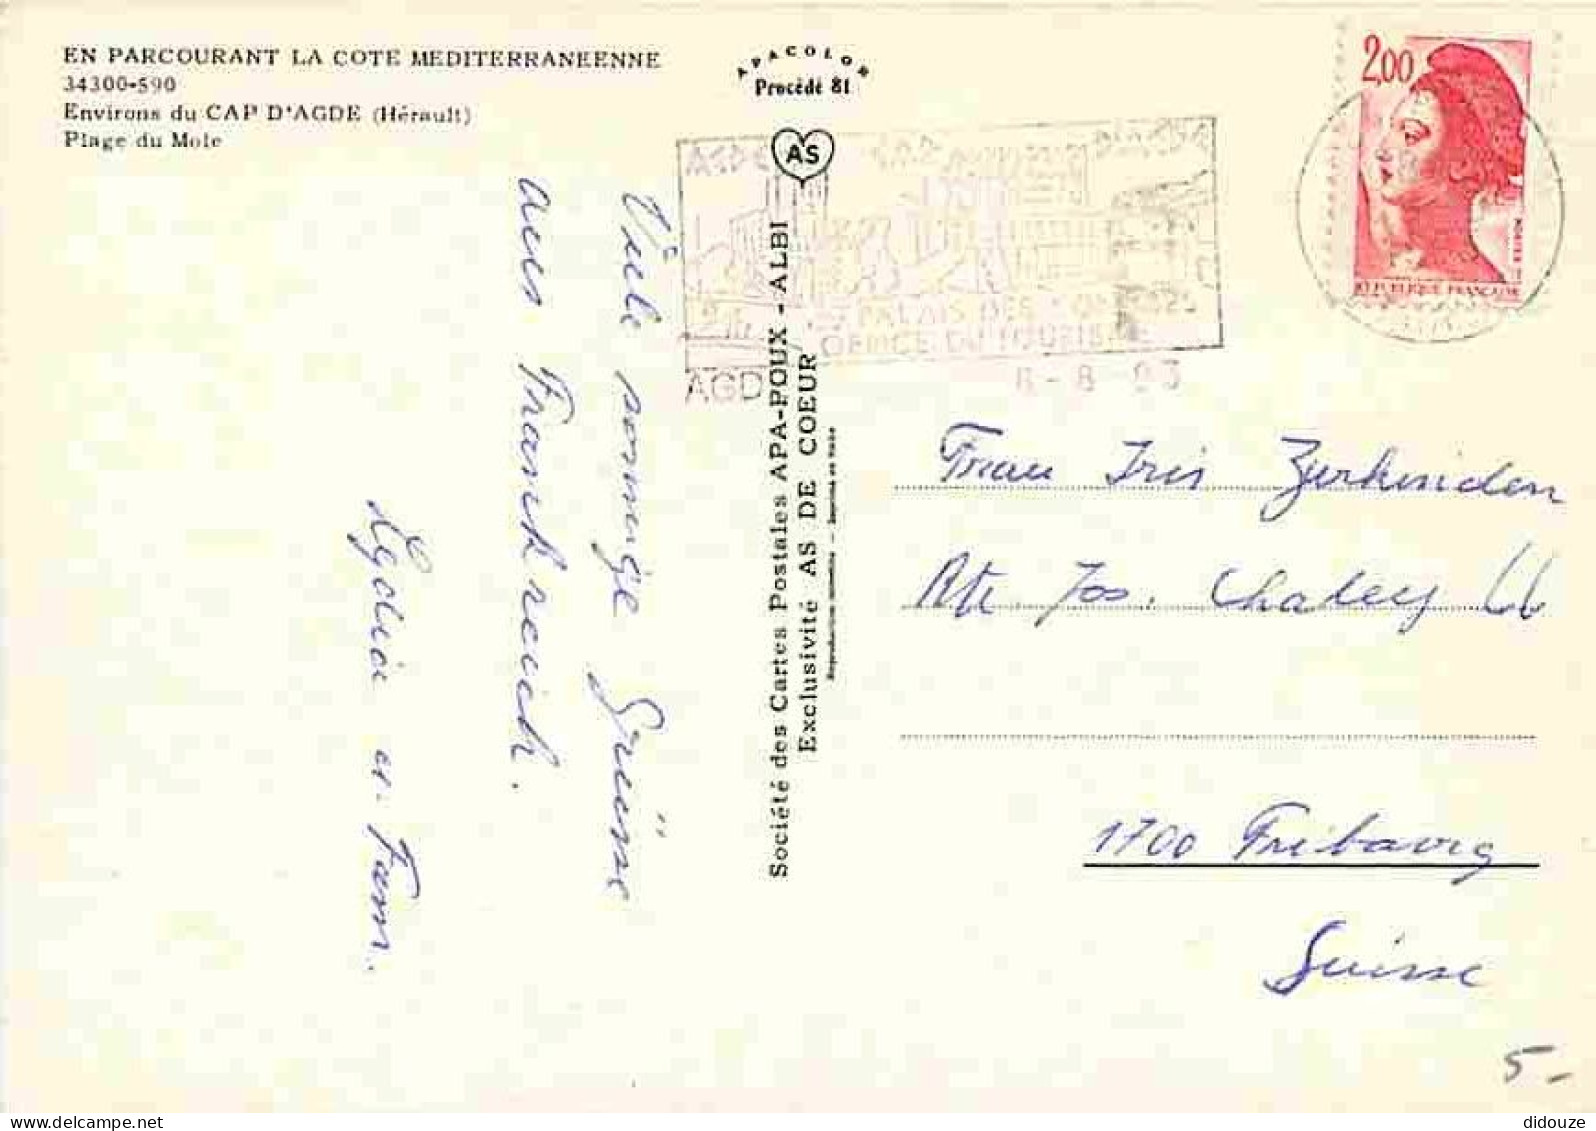 EN PARCOURANT LA COTE MEDITERRANEENNE
34300-590
Environs du CAP D'AGDE (Hérault)
Plage du Mole
APACOLOR
Procédé 81
AS
Société des Cartes Postales APA-POUX - ALBI
Exclusivité AS DE COEUR
2,00
REPUBLIQUE FRANÇAISE
PALAIS DES CONGRES
OFFICE DU TOURISME
AGD
8-8
Viele sonnige Grüsse
aus Frankreich.
Lydia u. Fam.
Frau Iris Zurkinden
Rte Jos. Chaley
1700 Fribourg
Suisse
5.-
didouze